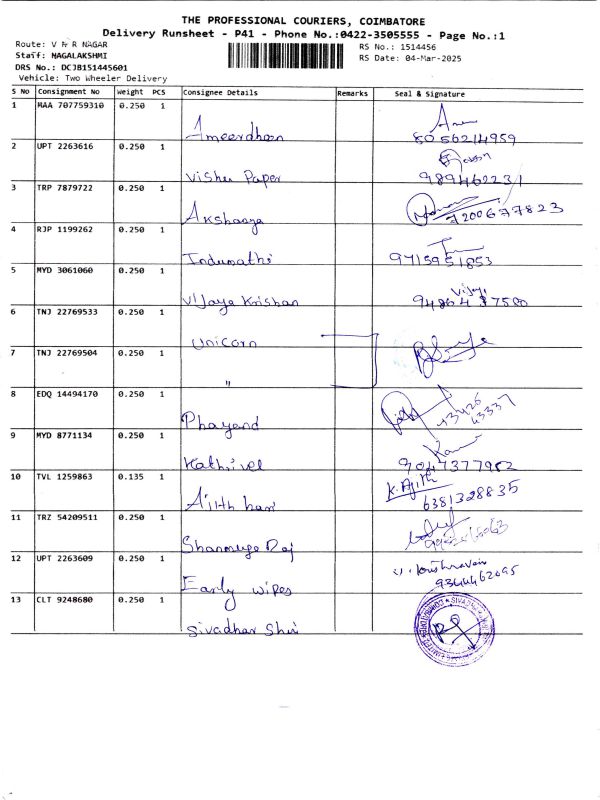 THE PROFESSIONAL COURIERS, COIMBATORE
Delivery Runsheet - P41 - Phone No.:0422-3505555 - Page No.:1
Route: V N R NAGAR
RS No.: 1514456
Staff: NAGALAKSHMI
RS Date: 04-Mar-2025
DRS No.: DCJB151445601
Vehicle: Two Wheeler Delivery
S No Consignment No Weight PCS Consignee Details Remarks Seal & Signature
1 MAA 707759310 0.250 1
Ameerdhoon 8056214959
2 UPT 2263616 0.250 1
Vishu Paper 989462231
3 TRP 7879722 0.250 1
Akshaaya 7200677823
4 RJP 1199262 0.250 1
Indumathi 9715951853
5 MYD 3061060 0.250 1
Vijaya Krishan Vijay 9486437500
6 TNJ 22769533 0.250 1
Unicorn
7 TNJ 22769504 0.250 1
"
8 EDQ 14494170 0.250 1
Phayand 73426 43337
9 MYD 8771134 0.250 1
Kathrivel 9047377952
10 TVL 1259863 0.135 1
Ajith hari K. Ajith 6381328835
11 TRZ 54209511 0.250 1
Shanmuga Raj
12 UPT 2263609 0.250 1
Early wipes 9344462695
13 CLT 9248680 0.250 1
Sivadhar Shri